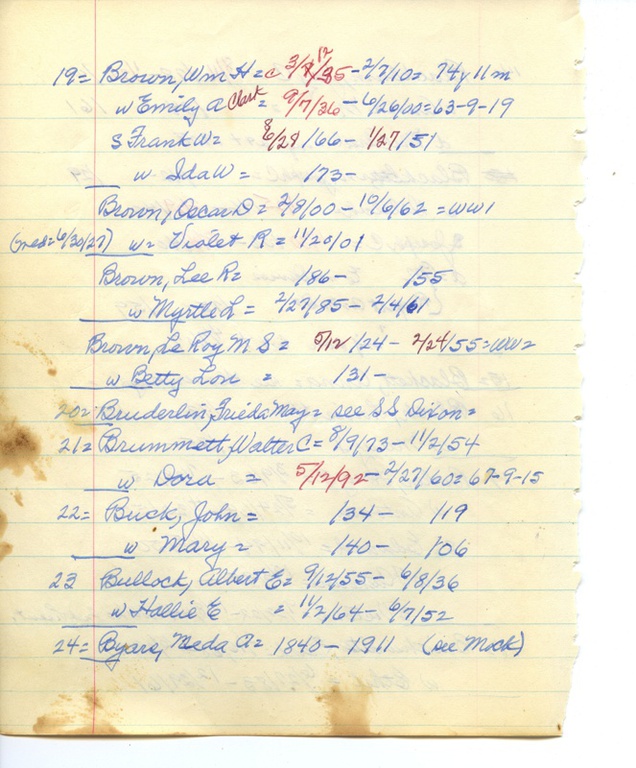 19= Brown, Wm H = c 3/12/35 - 2/7/10 = 74y 11m
w Emily A Clark = 9/7/36 - 6/26/00 = 63-9-19
S Frank W = 8/28/66 - 1/27/51
w Ida W = /73 -
Brown, Oscar D = 2/8/00 - 10/6/62 = WW1
(md = 6/30/27) w = Violet R = 11/20/01
Brown, Lee R = /86 - /55
w Myrtle L = 2/27/85 - 2/4/61
Brown, Le Roy M S = 5/12/24 - 2/24/55 = WW2
w Betty Lou = /31 -
20= Bruderlin, Frieda May = see SS Dixon =
21= Brummett, Walter C = 8/9/73 - 11/2/54
w Dora = 5/12/92 - 2/27/60 = 67-9-15
22= Buck, John = /34 - /19
w Mary = /40 - /06
23 Bullock, Albert E = 9/12/55 - 6/8/36
w Hallie E = 11/2/64 - 6/7/52
24= Byars, Meda A = 1840 - 1911 (see Mock)